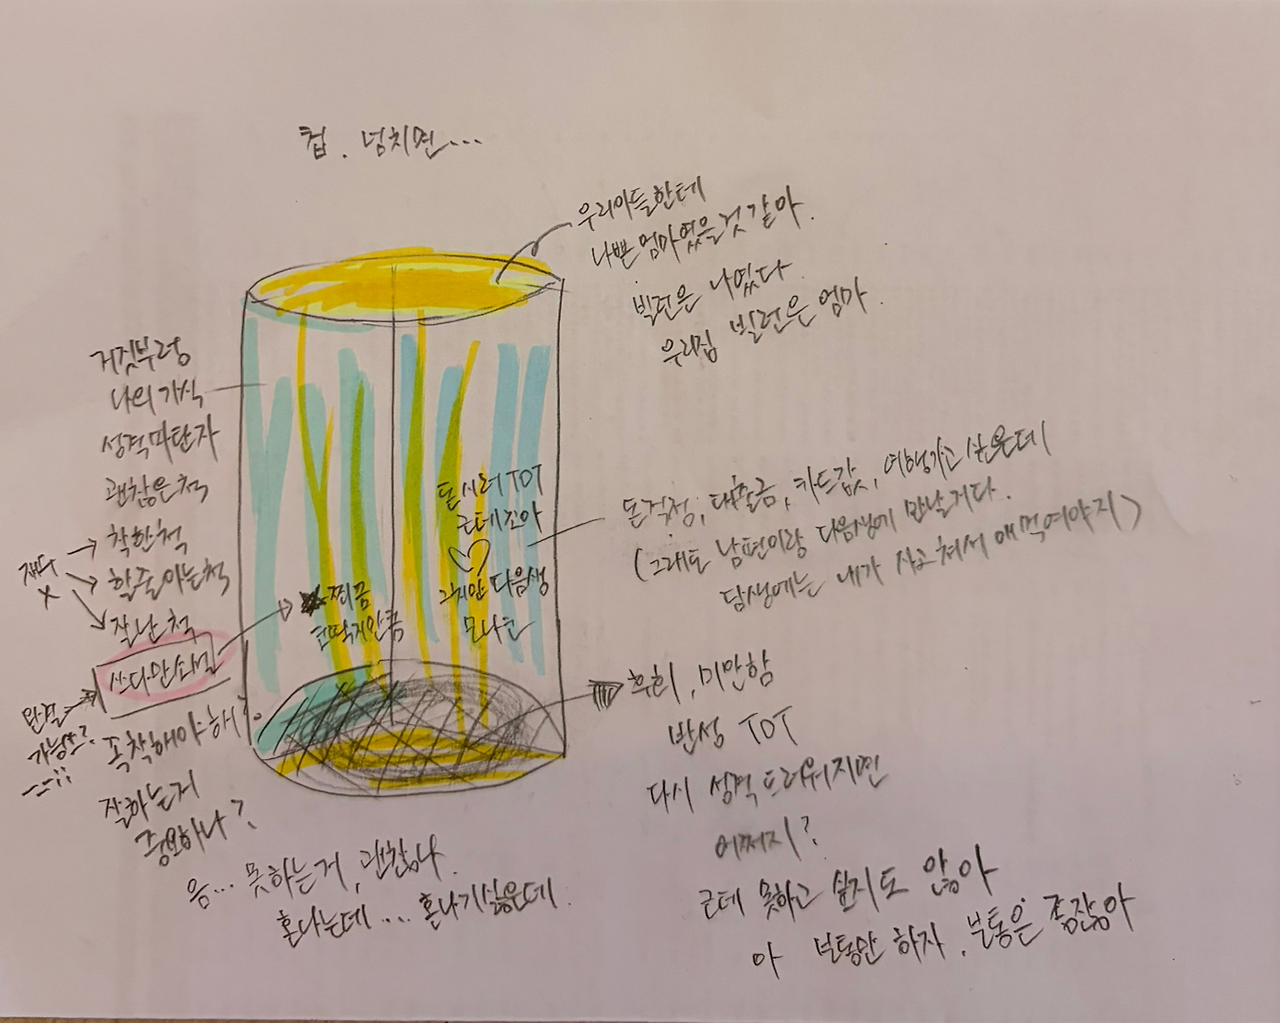 컵. 넘치면...
우리아들한테
나쁜 엄마였을것 같아.
빌런은 나였다
우리집 빌런은 엄마.
거짓부렁
나의 가식
성격파탄자
괜찮은척
착한척
할줄아는척
잘난척
쓰다만소설
재다
X
완결
가능성?
--;;
꼭착해야해?
잘하는게
중요하나?
음... 못하는거, 괜찮나.
혼나는데... 혼나기싫은데.
찌끔
코딱지만큼
돈시러 TOT
근데조아
그치만 다음생
모나코
돈걱정, 대출금, 카드값, 여행가고 싶은데
(그래도 남편이랑 다음생에 만날거다.
담생에는 내가 사고쳐서 애먹여야지)
후회, 미안함
반성 TOT
다시 성격 드러워지면
어쩌지?
근데 못하고 싶지도 않아
아 보통만 하자. 보통은 좋잖아